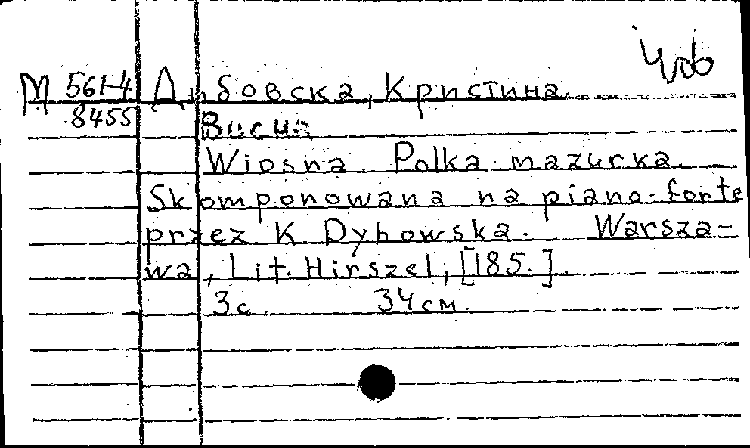 М 561-4 Дибовска, Кристина
8455
Wiosna Polka mazurka.
Skomponowana na piano-forte
przez K Dybowska. Warsza-
wa, Lit. Hirszel, [185.].
3с. 34 см.